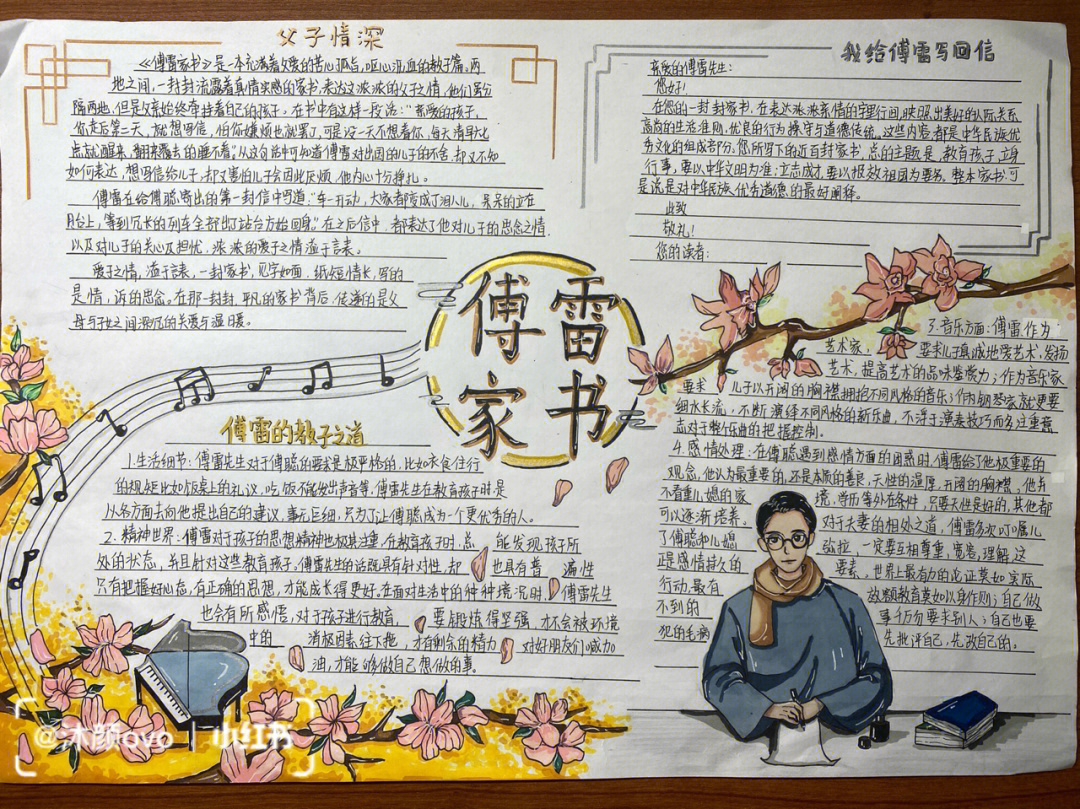 父子情深
《傅雷家书》是一本充满着父爱的苦心孤点,呕心沥血的教子篇。两
地之间,一封封流露着真情实感的家书,表达这浓浓的父子之情,他们虽分
隔两地,但是父亲始终牵挂着自己的孩子。在书中有这样一段话:“亲爱的孩子,
你走后第二天,就想写信,怕你嫌烦也就罢了,可是没一天不想着你,每天清早六七
点就醒来,翻来覆去的睡不着。”从这句话中可知道傅雷对出国的儿子的不舍,却又不知
如何表达,想写信给儿子,却又害怕儿子会因此厌烦,他内心十分挣扎。
傅雷在给傅聪寄出的第一封信中写道,“车一开动,大家都变成了泪人儿,呆呆的立在
月台上,等到冗长的列车全部出了站台方始回身。”在之后信中,都表达了他对儿子的思念之情,
以及对儿子的关心及担忧,浓浓的爱子之情溢于言表。
爱子之情,溢于言表,一封家书,见字如面,纸短情长,写的
是情,诉的思念。在那一封封平凡的家书背后,传递的是父
母与子女之间深沉的关爱与温暖。
我给傅雷写回信
亲爱的傅雷先生:
您好!
在您的一封封家书,在表达浓浓亲情的字里行间,映照出美好的人际关系,
高尚的生活准则,优良的行为操守与道德传统。这些内容,都是中华民族优
秀文化的组成部分,您所写下的近百封家书,总的主题是,教育孩子立身
行事,要以中华文明为准;立志成才,要以报效祖国为要务。整本家书可
是说是对中华民族优秀道德的最好阐释。
此致
敬礼!
您的读者:
傅雷
家书
傅雷的教子之道
1.生活细节:傅雷先生对于傅聪的要求是极严格的,比如衣食住行
的规矩比如饭桌上的礼仪,吃饭不能发出声音等,傅雷先生在教育孩子时是
以各方面去向他提出自己的建议,事无巨细,只为了让傅聪成为一个更优秀的人。
2.精神世界:傅雷对于孩子的思想精神也极其注重,在教育孩子时,总能发现孩子所
处的状态,并且针对这些教育孩子。傅雷先生的话既具有针对性,却也具有普遍性
只有把握好心态,有正确的思想,才能成长得更好,在面对生活中的种种境况时,傅雷先生
也会有所感悟,对于孩子进行教育,要锻炼得坚强,才不会被环境
中的消极因素往下拖,才有剩余的精力对好朋友们喊加
油,才能够做自己想做的事。
3.音乐方面:傅雷作为
艺术家,要求儿子真诚地爱艺术,发扬
艺术,提高艺术的品味鉴赏力;作为音乐家
要求儿子以开阔的胸襟拥抱不同风格的音乐;作为钢琴家就更要
细水长流,不断演绎不同风格的新乐曲,不浮于演奏技巧而多注重意
志对于整个乐曲的把握控制。
4.感情处理:在傅聪遇到感情方面的困惑时,傅雷给了他极重要的
观念,他认为最重要的,还是本质的善良,天性的温厚,开阔的胸襟,他并
不看重儿媳的家境,学历等外在条件,只要天性是好的,其他都
可以逐渐培养。对于夫妻的相处之道,傅雷多次叮嘱儿
了傅聪和儿媳弥拉,一定要互相尊重,宽容,理解,这
正是感情持久的要素。世界上最有力的论证莫如实际
行动,最有效的教育莫如以身作则;自己做
不到的事千万勿要求别人;自己也要
犯的毛病先批评自己,先改自己的。
@沐颜ovo | 小红书